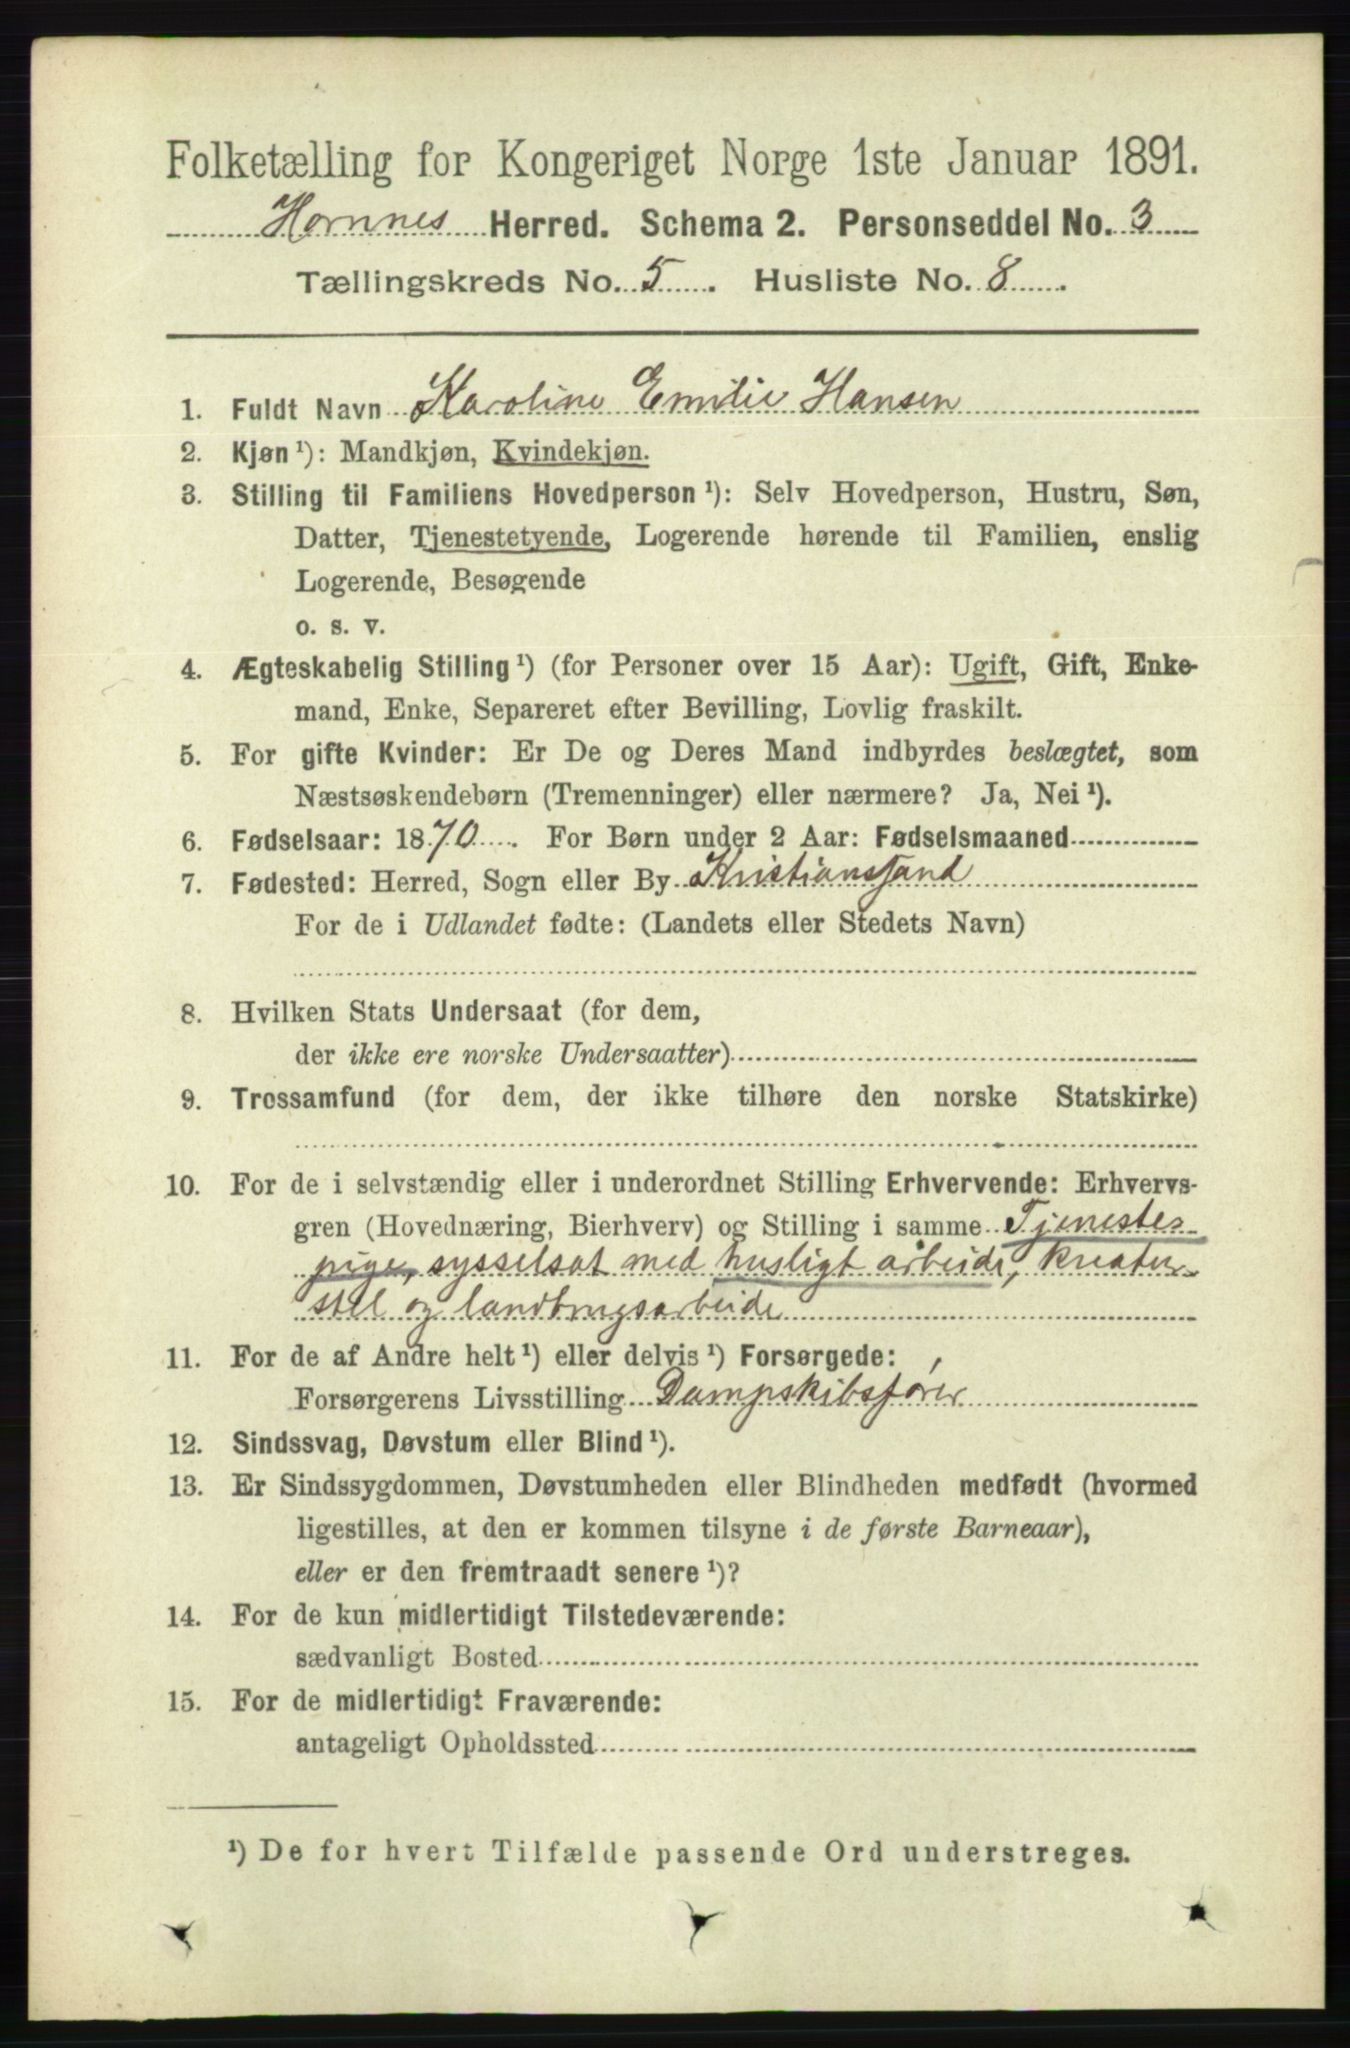 Folketælling for Kongeriget Norge 1ste Januar 1891.
Hornnes Herred. Schema 2. Personseddel No. 3
Tællingskreds No. 5. Husliste No. 8.
1. Fuldt Navn Karoline Emilie Hansen
2. Kjøn ¹): Mandkjøn, Kvindekjøn.
3. Stilling til Familiens Hovedperson ¹): Selv Hovedperson, Hustru, Søn,
Datter, Tjenestetyende, Logerende hørende til Familien, enslig
Logerende, Besøgende
o. s. v.
4. Ægteskabelig Stilling ¹) (for Personer over 15 Aar): Ugift, Gift, Enke-
mand, Enke, Separeret efter Bevilling, Lovlig fraskilt.
5. For gifte Kvinder: Er De og Deres Mand indbyrdes beslægtet, som
Næstsøskendebørn (Tremenninger) eller nærmere? Ja, Nei ¹).
6. Fødselsaar: 1870. For Børn under 2 Aar: Fødselsmaaned
7. Fødested: Herred, Sogn eller By Kristianssand
For de i Udlandet fødte: (Landets eller Stedets Navn)
8. Hvilken Stats Undersaat (for dem,
der ikke ere norske Undersaatter)
9. Trossamfund (for dem, der ikke tilhøre den norske Statskirke)
10. For de i selvstændig eller i underordnet Stilling Erhvervende: Erhvervs-
gren (Hovednæring, Bierhverv) og Stilling i samme Tjeneste-
pige, sysselsat med husligt arbeide, kreatur-
stel og landbrugsarbeide
11. For de af Andre helt ¹) eller delvis ¹) Forsørgede:
Forsørgerens Livsstilling Dampskibsfører
12. Sindssvag, Døvstum eller Blind ¹).
13. Er Sindssygdommen, Døvstumheden eller Blindheden medfødt (hvormed
ligestilles, at den er kommen tilsyne i de første Barneaar),
eller er den fremtraadt senere ¹)?
14. For de kun midlertidigt Tilstedeværende:
sædvanligt Bosted
15. For de midlertidigt Fraværende:
antageligt Opholdssted
¹) De for hvert Tilfælde passende Ord understreges.